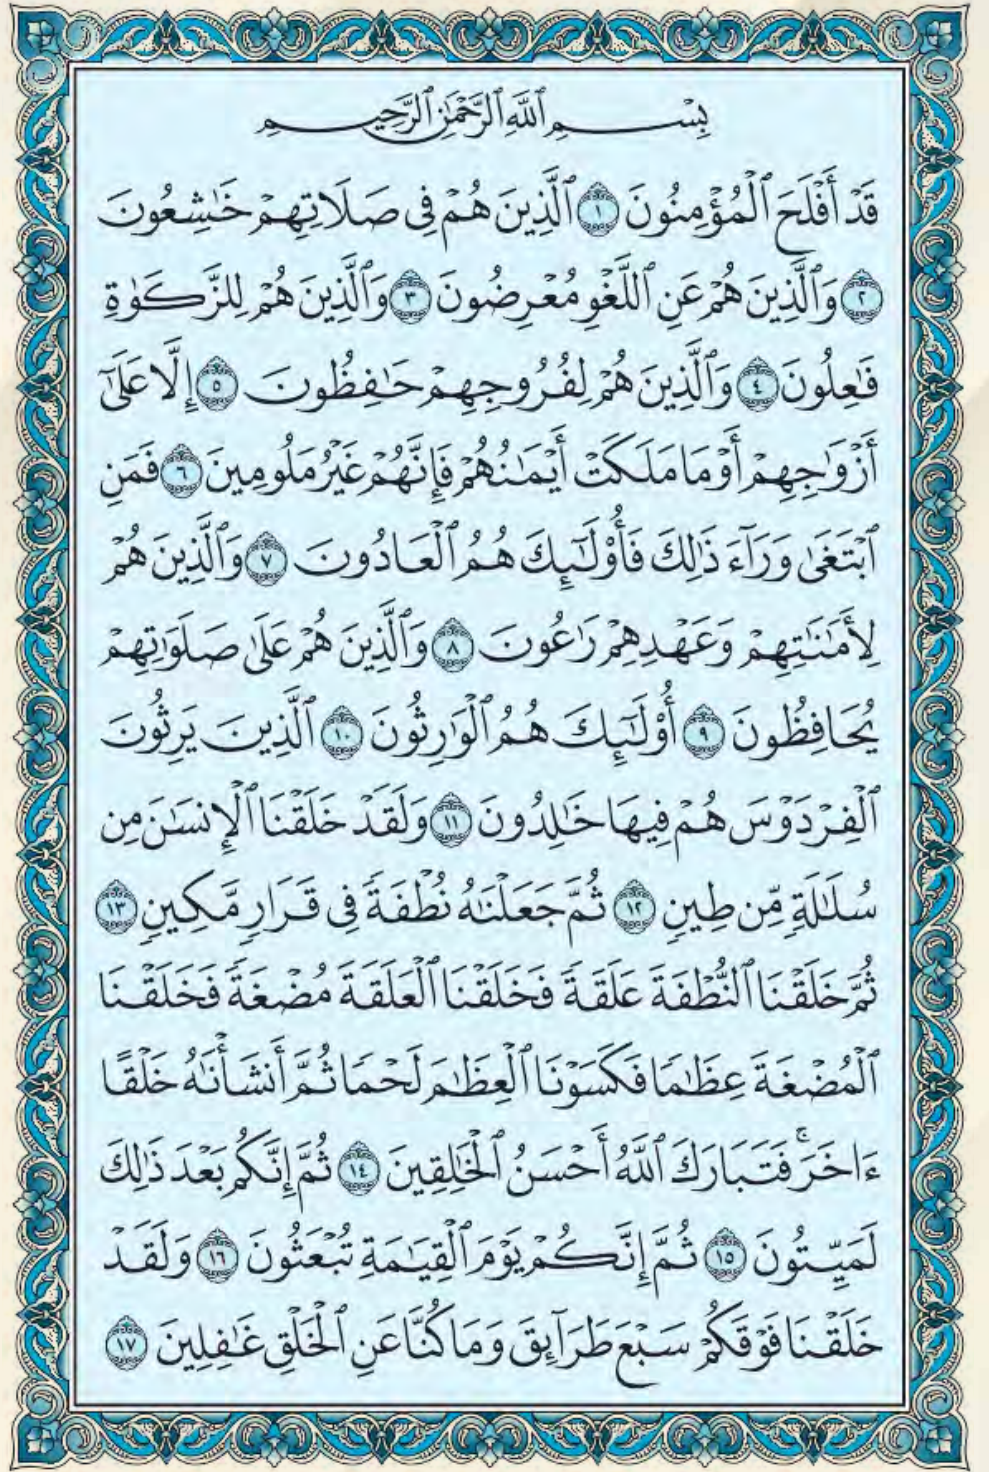 بِسْمِ ٱللَّهِ ٱلرَّحْمَٰنِ ٱلرَّحِيمِ
قَدْ أَفْلَحَ ٱلْمُؤْمِنُونَ ١ ٱلَّذِينَ هُمْ فِى صَلَاتِهِمْ خَٰشِعُونَ
٢ وَٱلَّذِينَ هُمْ عَنِ ٱللَّغْوِ مُعْرِضُونَ ٣ وَٱلَّذِينَ هُمْ لِلزَّكَوٰةِ
فَٰعِلُونَ ٤ وَٱلَّذِينَ هُمْ لِفُرُوجِهِمْ حَٰفِظُونَ ٥ إِلَّا عَلَىٰٓ
أَزْوَٰجِهِمْ أَوْ مَا مَلَكَتْ أَيْمَٰنُهُمْ فَإِنَّهُمْ غَيْرُ مَلُومِينَ ٦ فَمَنِ
ٱبْتَغَىٰ وَرَآءَ ذَٰلِكَ فَأُو۟لَٰٓئِكَ هُمُ ٱلْعَادُونَ ٧ وَٱلَّذِينَ هُمْ
لِأَمَٰنَٰتِهِمْ وَعَهْدِهِمْ رَٰعُونَ ٨ وَٱلَّذِينَ هُمْ عَلَىٰ صَلَوَٰتِهِمْ
يُحَافِظُونَ ٩ أُو۟لَٰٓئِكَ هُمُ ٱلْوَٰرِثُونَ ١٠ ٱلَّذِينَ يَرِثُونَ
ٱلْفِرْدَوْسَ هُمْ فِيهَا خَٰلِدُونَ ١١ وَلَقَدْ خَلَقْنَا ٱلْإِنسَٰنَ مِن
سُلَٰلَةٍ مِّن طِينٍ ١٢ ثُمَّ جَعَلْنَٰهُ نُطْفَةً فِى قَرَارٍ مَّكِينٍ ١٣
ثُمَّ خَلَقْنَا ٱلنُّطْفَةَ عَلَقَةً فَخَلَقْنَا ٱلْعَلَقَةَ مُضْغَةً فَخَلَقْنَا
ٱلْمُضْغَةَ عِظَٰمًا فَكَسَوْنَا ٱلْعِظَٰمَ لَحْمًا ثُمَّ أَنشَأْنَٰهُ خَلْقًا
ءَاخَرَ ۚ فَتَبَارَكَ ٱللَّهُ أَحْسَنُ ٱلْخَٰلِقِينَ ١٤ ثُمَّ إِنَّكُم بَعْدَ ذَٰلِكَ
لَمَيِّتُونَ ١٥ ثُمَّ إِنَّكُمْ يَوْمَ ٱلْقِيَٰمَةِ تُبْعَثُونَ ١٦ وَلَقَدْ
خَلَقْنَا فَوْقَكُمْ سَبْعَ طَرَآئِقَ وَمَا كُنَّا عَنِ ٱلْخَلْقِ غَٰفِلِينَ ١٧